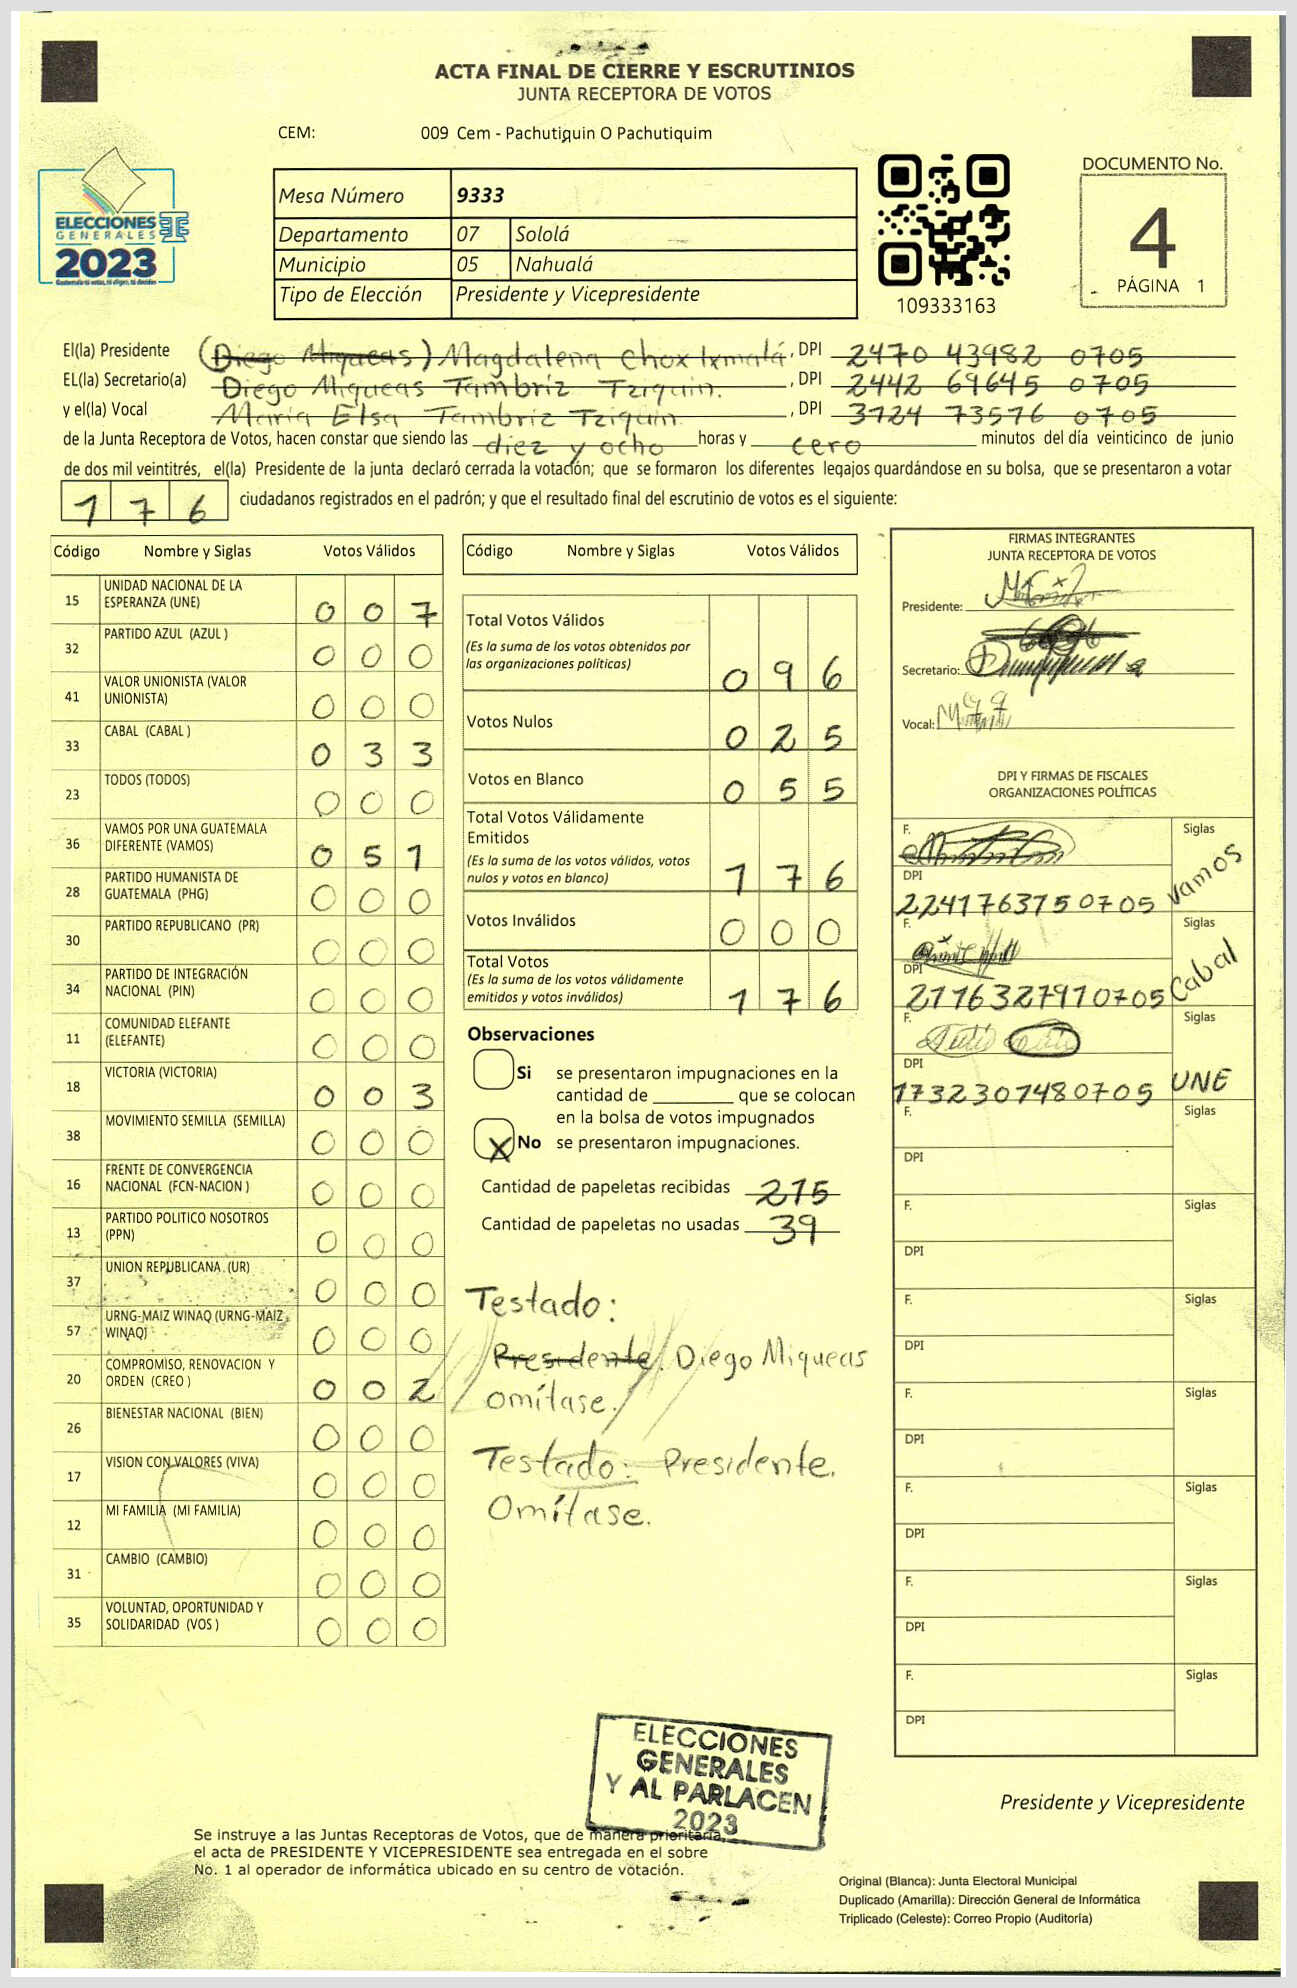 ACTA FINAL DE CIERRE Y ESCRUTINIOS
JUNTA RECEPTORA DE VOTOS
CEM: 009 Cem - Pachutiquin O Pachutiquim
ELECCIONES
GENERALES
2023
Mesa Número 9333
Departamento 07 Sololá
Municipio 05 Nahualá
Tipo de Elección Presidente y Vicepresidente
109333163
DOCUMENTO No.
4
PÁGINA 1
El(la) Presidente (Diego Miqueas) Magdalena Chox Ixmatá, DPI 2470 43982 0705
EL(la) Secretario(a) Diego Miqueas Tambriz Tziquin. , DPI 2442 69645 0705
y el(la) Vocal María Elsa Tambriz Tziquin. , DPI 3724 73576 0705
de la Junta Receptora de Votos, hacen constar que siendo las diez y ocho horas y cero minutos del día veinticinco de junio
de dos mil veintitrés, el(la) Presidente de la junta declaró cerrada la votación; que se formaron los diferentes legajos quardándose en su bolsa, que se presentaron a votar
176 ciudadanos registrados en el padrón; y que el resultado final del escrutinio de votos es el siguiente:
Código Nombre y Siglas Votos Válidos
15 UNIDAD NACIONAL DE LA ESPERANZA (UNE) 0 0 7
32 PARTIDO AZUL (AZUL ) 0 0 0
41 VALOR UNIONISTA (VALOR UNIONISTA) 0 0 0
33 CABAL (CABAL ) 0 3 3
23 TODOS (TODOS) 0 0 0
36 VAMOS POR UNA GUATEMALA DIFERENTE (VAMOS) 0 5 1
28 PARTIDO HUMANISTA DE GUATEMALA (PHG) 0 0 0
30 PARTIDO REPUBLICANO (PR) 0 0 0
34 PARTIDO DE INTEGRACIÓN NACIONAL (PIN) 0 0 0
11 COMUNIDAD ELEFANTE (ELEFANTE) 0 0 0
18 VICTORIA (VICTORIA) 0 0 3
38 MOVIMIENTO SEMILLA (SEMILLA) 0 0 0
16 FRENTE DE CONVERGENCIA NACIONAL (FCN-NACION ) 0 0 0
13 PARTIDO POLITICO NOSOTROS (PPN) 0 0 0
37 UNION REPUBLICANA (UR) 0 0 0
57 URNG-MAIZ WINAQ (URNG-MAIZ WINAQ) 0 0 0
20 COMPROMISO, RENOVACION Y ORDEN (CREO ) 0 0 2
26 BIENESTAR NACIONAL (BIEN) 0 0 0
17 VISION CON VALORES (VIVA) 0 0 0
12 MI FAMILIA (MI FAMILIA) 0 0 0
31 CAMBIO (CAMBIO) 0 0 0
35 VOLUNTAD, OPORTUNIDAD Y SOLIDARIDAD (VOS ) 0 0 0
Código Nombre y Siglas Votos Válidos
Total Votos Válidos
(Es la suma de los votos obtenidos por
las organizaciones políticas) 0 9 6
Votos Nulos 0 2 5
Votos en Blanco 0 5 5
Total Votos Válidamente
Emitidos
(Es la suma de los votos válidos, votos
nulos y votos en blanco) 1 7 6
Votos Inválidos 0 0 0
Total Votos
(Es la suma de los votos válidamente
emitidos y votos inválidos) 1 7 6
Observaciones
Si se presentaron impugnaciones en la
cantidad de ________ que se colocan
en la bolsa de votos impugnados
X No se presentaron impugnaciones.
Cantidad de papeletas recibidas 215
Cantidad de papeletas no usadas 39
Testado:
Presidente. Diego Miqueas
omítase.
Testado: Presidente.
Omítase.
FIRMAS INTEGRANTES
JUNTA RECEPTORA DE VOTOS
Presidente:
Secretario:
Vocal:
DPI Y FIRMAS DE FISCALES
ORGANIZACIONES POLÍTICAS
F. Siglas
DPI 2241763750705 Vamos
F. Siglas
DPI 2116327910705 Cabal
F. Siglas
DPI 1732307480705 UNE
F. Siglas
DPI
F. Siglas
DPI
F. Siglas
DPI
F. Siglas
DPI
F. Siglas
DPI
F. Siglas
DPI
F. Siglas
DPI
ELECCIONES
GENERALES
Y AL PARLACEN
2023
Presidente y Vicepresidente
Se instruye a las Juntas Receptoras de Votos, que de manera prioritaria,
el acta de PRESIDENTE Y VICEPRESIDENTE sea entregada en el sobre
No. 1 al operador de informática ubicado en su centro de votación.
Original (Blanca): Junta Electoral Municipal
Duplicado (Amarilla): Dirección General de Informática
Triplicado (Celeste): Correo Propio (Auditoría)